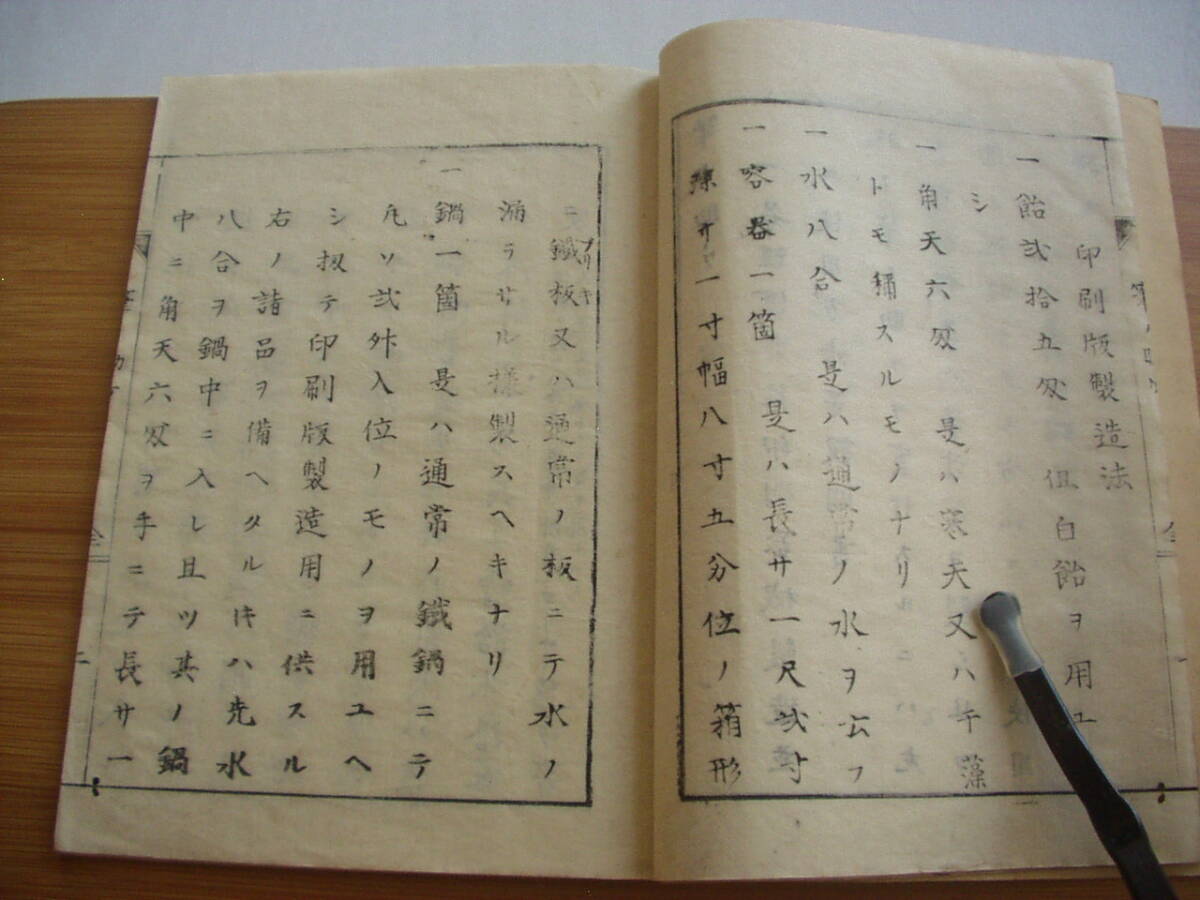 印刷版製造法
一飴弐拾五匁 但白飴ヲ用ユ
シ
一角天六匁 是ハ寒天又ハ
トモ稱スルモノナリ
一水八合 是ハ通常ノ水ヲ云フ
一容器一箇 是ハ長サ一尺弐寸
サ一寸幅八寸五分位ノ箱形
ニ鐵板又ハ通常ノ板ニテ水ノ
ブリキ
漏ラサル樣製スヘキナリ
一鍋一箇 是ハ通常ノ鐵鍋ニテ
凡ソ弐舛入位ノモノヲ用ユヘ
シ扨テ印刷版製造用ニ供スル
右ノ諸品ヲ備ヘタルキハ先水
八合ヲ鍋中ニ入レ且ツ其ノ鍋
中ニ角天六匁ヲ手ニテ長サ一
二